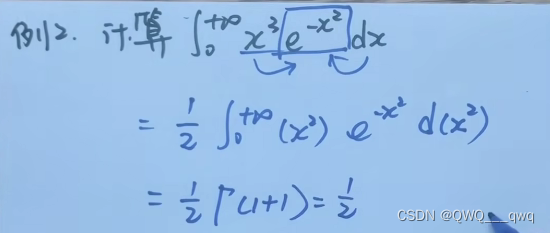 例12. 计算 ∫₀⁺∞ x³ e^(-x²) dx
= 1/2 ∫₀⁺∞ (x²) e^(-x²) d(x²)
= 1/2 Γ(1+1) = 1/2
CSDN @QWQ___qwq